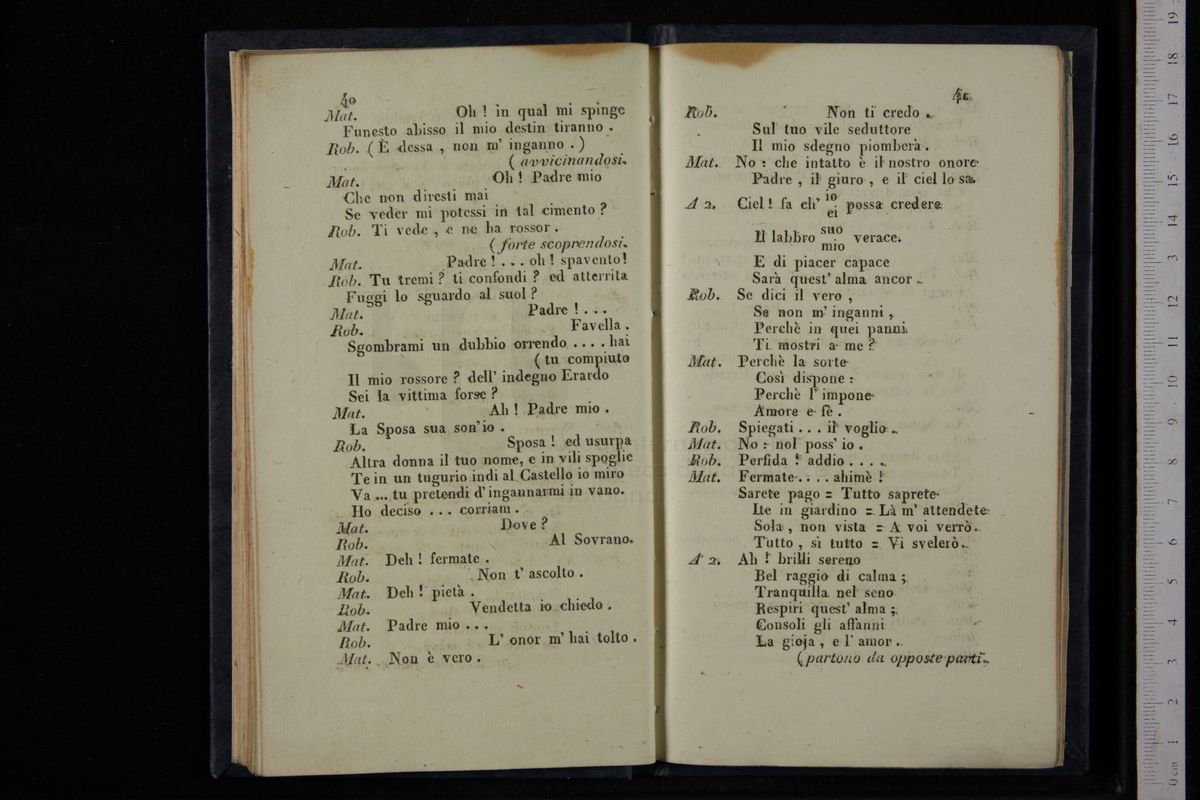 40
Mat. Oh ! in qual mi spinge
Funesto abisso il mio destin tiranno .
Rob. ( È dessa , non m' inganno . )
( avvicinandosi.
Mat. Oh ! Padre mio
Che non diresti mai
Se veder mi potessi in tal cimento ?
Rob. Ti vede , e ne ha rossor .
( forte scoprendosi.
Mat. Padre ! . . . oh ! spavento !
Rob. Tu tremi ? ti confondi ? ed atterrita
Fuggi lo sguardo al suol ?
Mat. Padre ! . . .
Rob. Favella .
Sgombrami un dubbio orrendo . . . . hai
( tu compiuto
Il mio rossore ? dell' indegno Erardo
Sei la vittima forse ?
Mat. Ah ! Padre mio .
La Sposa sua son' io .
Rob. Sposa ! ed usurpa
Altra donna il tuo nome, e in vili spoglie
Te in un tugurio indi al Castello io miro
Va ... tu pretendi d' ingannarmi in vano.
Ho deciso . . . corriam .
Mat. Dove ?
Rob. Al Sovrano.
Mat. Deh ! fermate .
Rob. Non t' ascolto .
Mat. Deh ! pietà .
Rob. Vendetta io chiedo .
Mat. Padre mio . . .
Rob. L' onor m' hai tolto .
Mat. Non è vero .
41
Rob. Non ti credo .
Sul tuo vile seduttore
Il mio sdegno piomberà .
Mat. No : che intatto è il nostro onore
Padre , il giuro , e il ciel lo sa.
A 2. Ciel ! fa ch' io possa credere
ei
Il labbro suo verace.
mio
E di piacer capace
Sarà quest' alma ancor .
Rob. Se dici il vero ,
Se non m' inganni ,
Perchè in quei panni
Ti mostri a me ?
Mat. Perchè la sorte
Così dispone :
Perchè l' impone
Amore e fè .
Rob. Spiegati . . . il voglio .
Mat. No : nol poss' io .
Rob. Perfida ! addio . . . .
Mat. Fermate . . . . ahimè !
Sarete pago = Tutto saprete
Ite in giardino = Là m' attendete
Sola , non vista = A voi verrò .
Tutto , sì tutto = Vi svelerò .
A 2. Ah ! brilli sereno
Bel raggio di calma ;
Tranquilla nel seno
Respiri quest' alma ;
Consoli gli affanni
La gioja , e l' amor .
( partono da opposte parti .
0 cm 1 2 3 4 5 6 7 8 9 10 11 12 13 14 15 16 17 18 19